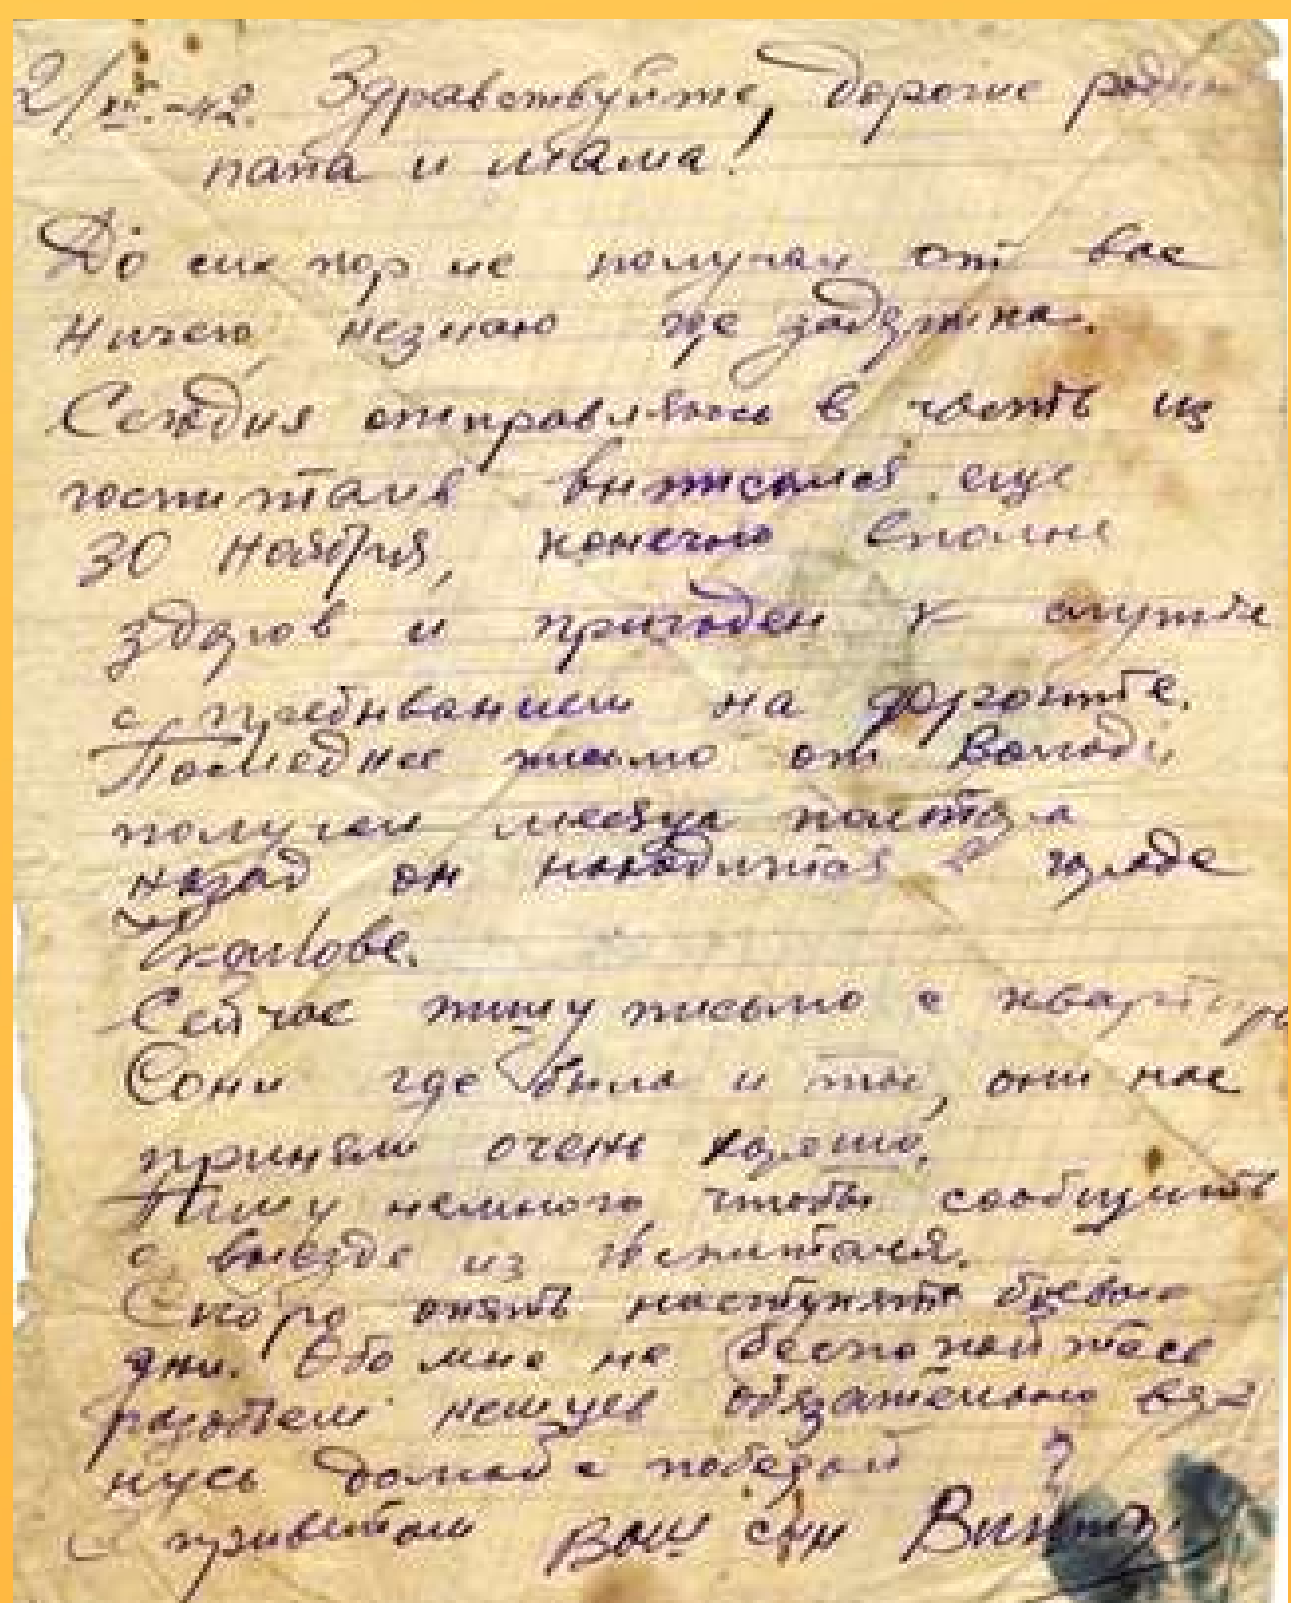 2/XII.-42. Здравствуйте, дорогие
папа и мама!
До сих пор не получал от вас
ничего, незнаю где задержка.
Сегодня отправляюсь в часть из
госпиталя выписался еще
30 Ноября, конечно вполне
здоров и пригоден к службе
с пребыванием на фронте.
Последнее письмо от Володи
получил месяца полтора
назад он находится в городе
Чкалове.
Сейчас пишу письмо с квартиры
Сони где была и ты, они нас
приняли очень хорошо.
Пишу немного чтобы сообщить
о выезде из госпиталя.
Скоро опять наступят боевые
дни. Обо мне не беспокойтесь
разобьем немцев обязательно вер
нусь домой с победой
С приветом Ваш сын